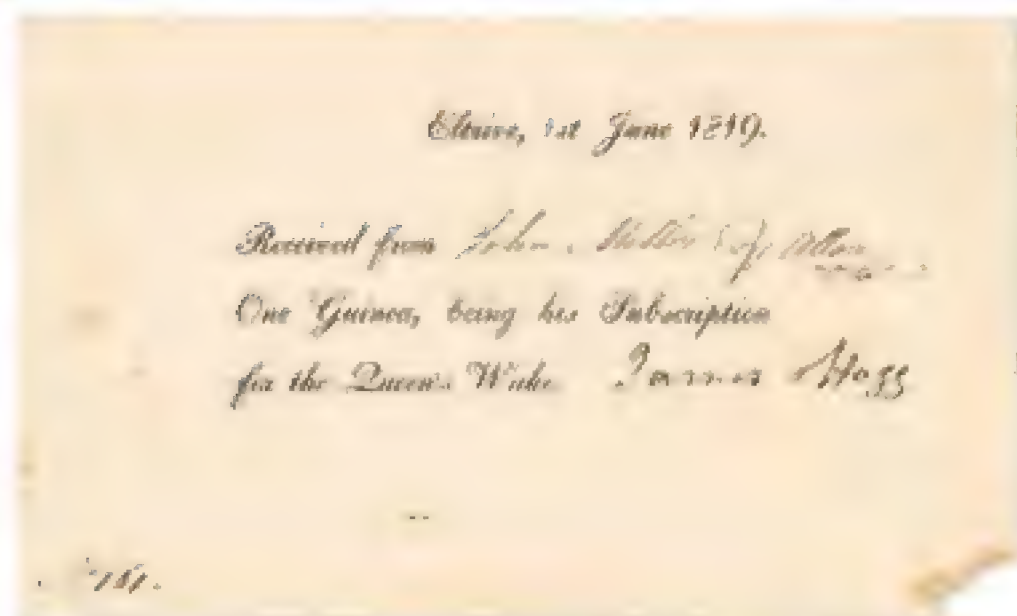 Eltrive, 1st June 1819.
Received from John
One Guinea, being his Subscription
for the Queen's Wake. James Hogg